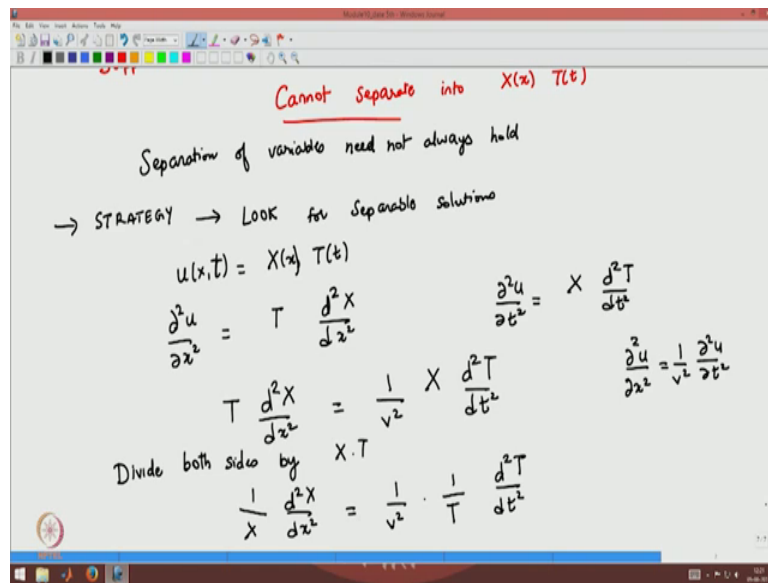 Module10_date 5th - Windows Journal
File Edit View Insert Actions Tools Help
Page Width
B I
Cannot separate into X(x) T(t)
Separation of variables need not always hold
→ STRATEGY → LOOK for separable solutions
u(x,t) = X(x) T(t)
∂²u/∂x² = T d²X/dx² ∂²u/∂t² = X d²T/dt²
T d²X/dx² = 1/v² X d²T/dt² ∂²u/∂x² = 1/v² ∂²u/∂t²
Divide both sides by X.T
1/X d²X/dx² = 1/v² · 1/T d²T/dt²
NPTEL